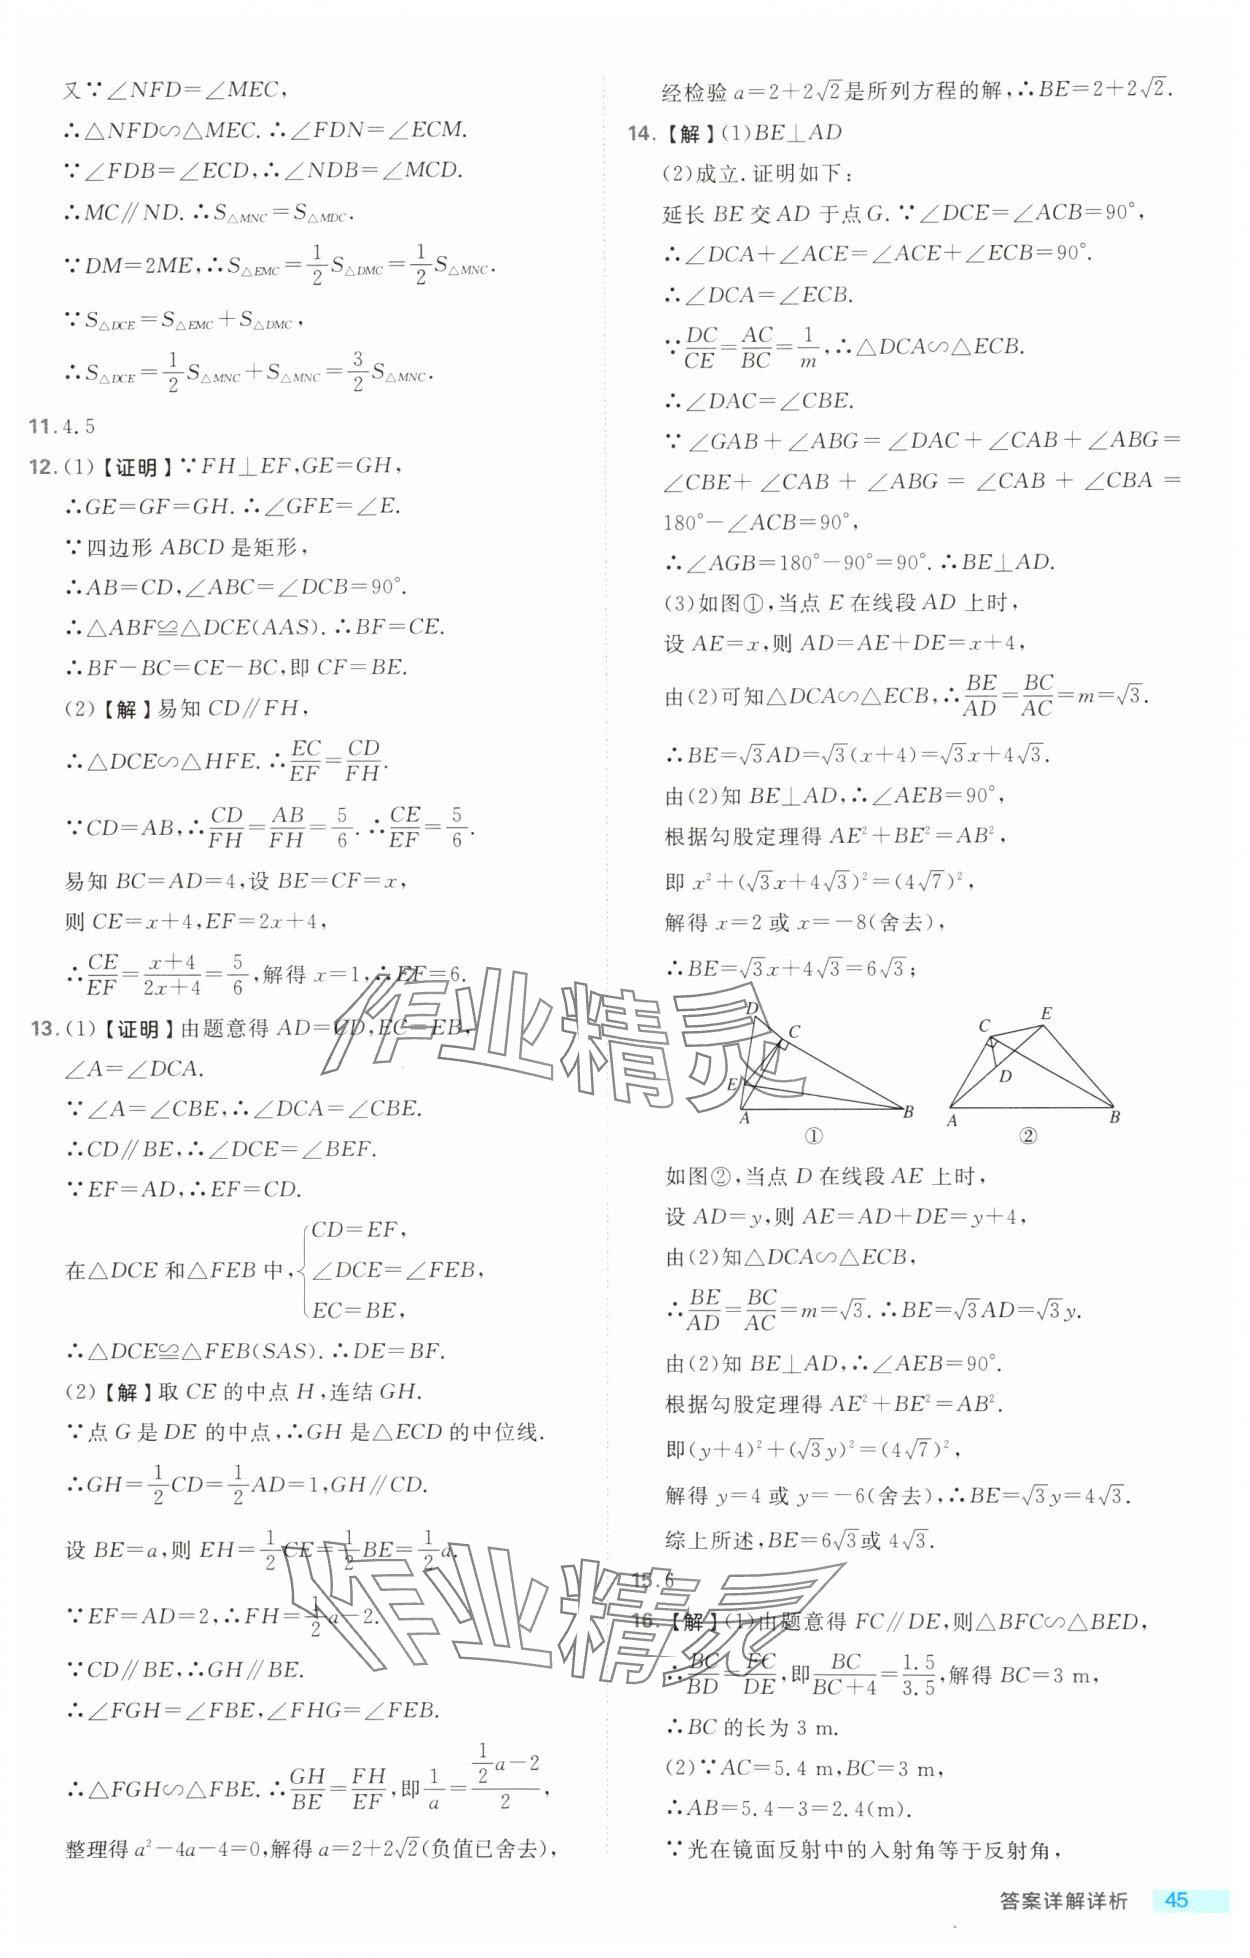 又∵∠NFD=∠MEC,
∴△NFD∽△MEC.∴∠FDN=∠ECM.
∵∠FDB=∠ECD,∴∠NDB=∠MCD.
∴MC∥ND.∴S△MNC=S△MDC.
∵DM=2ME,∴S△EMC=1/2S△DMC=1/2S△MNC.
∵S△DCE=S△EMC+S△DMC,
∴S△DCE=1/2S△MNC+S△MNC=3/2S△MNC.
11.4.5
12.(1)【证明】∵FH⊥EF,GE=GH,
∴GE=GF=GH.∴∠GFE=∠E.
∵四边形ABCD是矩形,
∴AB=CD,∠ABC=∠DCB=90°.
∴△ABF≌△DCE(AAS).∴BF=CE.
∴BF-BC=CE-BC,即CF=BE.
(2)【解】易知CD∥FH,
∴△DCE∽△HFE.∴EC/EF=CD/FH.
∵CD=AB,∴CD/FH=AB/FH=5/6.∴CE/EF=5/6.
易知BC=AD=4,设BE=CF=x,
则CE=x+4,EF=2x+4,
∴CE/EF=(x+4)/(2x+4)=5/6,解得x=1,∴EF=6.
13.(1)【证明】由题意得AD=CD,EC=EB,
∠A=∠DCA.
∵∠A=∠CBE,∴∠DCA=∠CBE.
∴CD∥BE,∴∠DCE=∠BEF.
∵EF=AD,∴EF=CD.
在△DCE和△FEB中,{CD=EF,
∠DCE=∠FEB,
EC=BE,
∴△DCE≌△FEB(SAS).∴DE=BF.
(2)【解】取CE的中点H,连结GH.
∵点G是DE的中点,∴GH是△ECD的中位线.
∴GH=1/2CD=1/2AD=1,GH∥CD.
设BE=a,则EH=1/2CE=1/2BE=1/2a.
∵EF=AD=2,∴FH=1/2a-2.
∵CD∥BE,∴GH∥BE.
∴∠FGH=∠FBE,∠FHG=∠FEB.
∴△FGH∽△FBE.∴GH/BE=FH/EF,即1/a=(1/2a-2)/2,
整理得a²-4a-4=0,解得a=2+2√2(负值已舍去),
经检验a=2+2√2是所列方程的解,∴BE=2+2√2.
14.【解】(1)BE⊥AD
(2)成立.证明如下:
延长BE交AD于点G.∵∠DCE=∠ACB=90°,
∴∠DCA+∠ACE=∠ACE+∠ECB=90°.
∴∠DCA=∠ECB.
∵DC/CE=AC/BC=1/m,∴△DCA∽△ECB.
∴∠DAC=∠CBE.
∵∠GAB+∠ABG=∠DAC+∠CAB+∠ABG=
∠CBE+∠CAB+∠ABG=∠CAB+∠CBA=
180°-∠ACB=90°,
∴∠AGB=180°-90°=90°.∴BE⊥AD.
(3)如图①,当点E在线段AD上时,
设AE=x,则AD=AE+DE=x+4,
由(2)可知△DCA∽△ECB,∴BE/AD=BC/AC=m=√3.
∴BE=√3AD=√3(x+4)=√3x+4√3.
由(2)知BE⊥AD,∴∠AEB=90°,
根据勾股定理得AE²+BE²=AB²,
即x²+(√3x+4√3)²=(4√7)²,
解得x=2或x=-8(舍去),
∴BE=√3x+4√3=6√3;
D C E A B
①
C E D A B
②
如图②,当点D在线段AE上时,
设AD=y,则AE=AD+DE=y+4,
由(2)知△DCA∽△ECB,
∴BE/AD=BC/AC=m=√3.∴BE=√3AD=√3y.
由(2)知BE⊥AD,∴∠AEB=90°.
根据勾股定理得AE²+BE²=AB².
即(y+4)²+(√3y)²=(4√7)²,
解得y=4或y=-6(舍去),∴BE=√3y=4√3.
综上所述,BE=6√3或4√3.
15.6
16.【解】(1)由题意得FC∥DE,则△BFC∽△BED,
∴BC/BD=FC/DE,即BC/(BC+4)=1.5/3.5,解得BC=3 m,
∴BC的长为3 m.
(2)∵AC=5.4 m,BC=3 m,
∴AB=5.4-3=2.4(m).
∵光在镜面反射中的入射角等于反射角,
答案详解详析 45
作业精灵
作业精灵